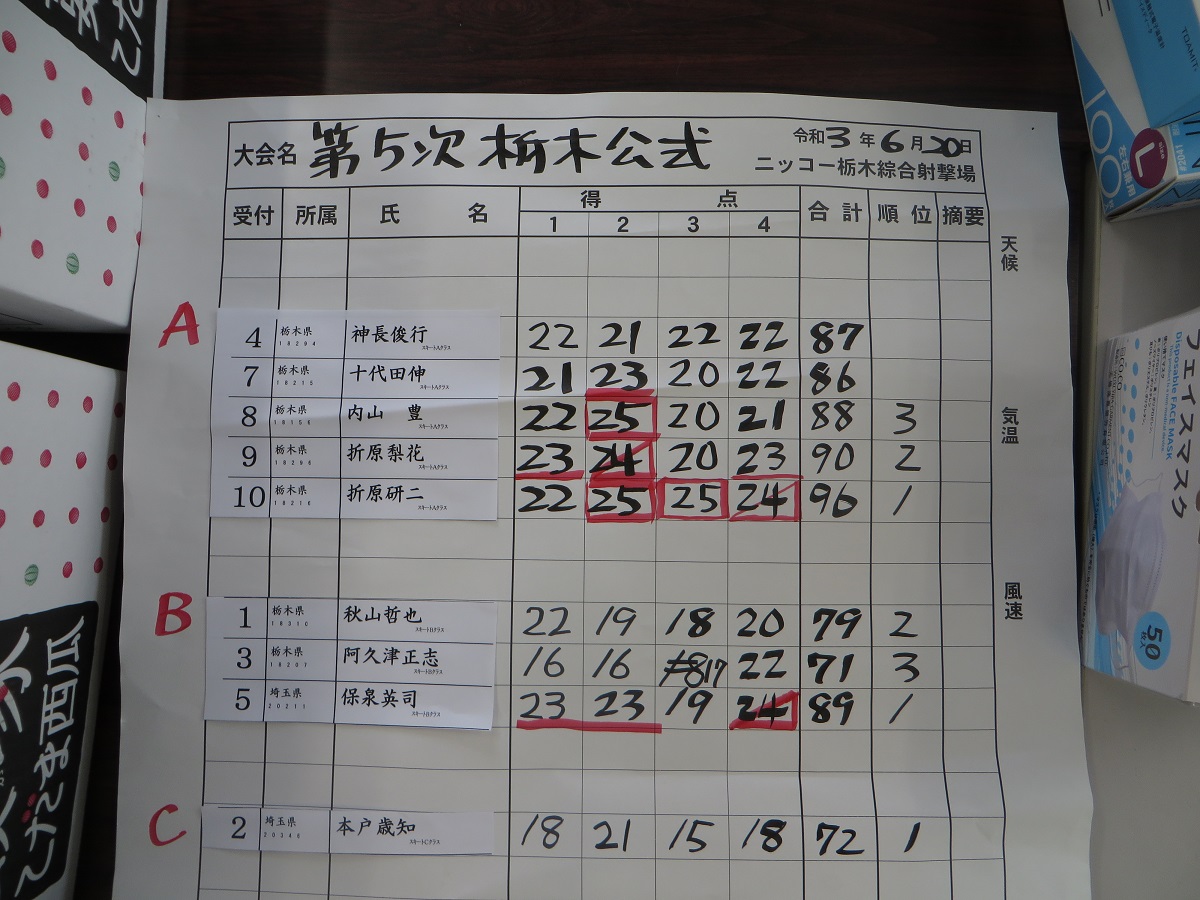 大会名 第5次 栃木公式 令和3年6月20日
ニッコー栃木綜合射撃場
受付 所属 氏 名 得 点 合計 順位 摘要
1 2 3 4
天候
A
4 栃木県 18294 神長俊行 スキートAクラス 22 21 22 22 87
7 栃木県 18215 十代田伸 スキートAクラス 21 23 20 22 86
8 栃木県 18156 内山 豊 スキートAクラス 22 25 20 21 88 3
気温
9 栃木県 18296 折原梨花 スキートAクラス 23 24 20 23 90 2
10 栃木県 18216 折原研二 スキートAクラス 22 25 25 24 96 1
風速
B
1 栃木県 18310 秋山哲也 スキートBクラス 22 19 18 20 79 2
3 栃木県 18207 阿久津正志 スキートBクラス 16 16 17 22 71 3
5 埼玉県 20211 保泉英司 スキートBクラス 23 23 19 24 89 1
C
2 埼玉県 20346 本戸歳知 スキートCクラス 18 21 15 18 72 1
100
L
フェイスマスク
Disposable FACE MASK
50枚入